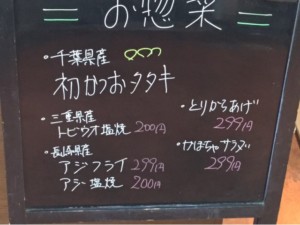 お惣菜
・千葉県産
初かつおタタキ
・三重県産
トビウオ塩焼 200円
・長崎県産
アジフライ 299円
アジ塩焼 200円
・とりからあげ
299円
・かぼちゃサラダ
299円